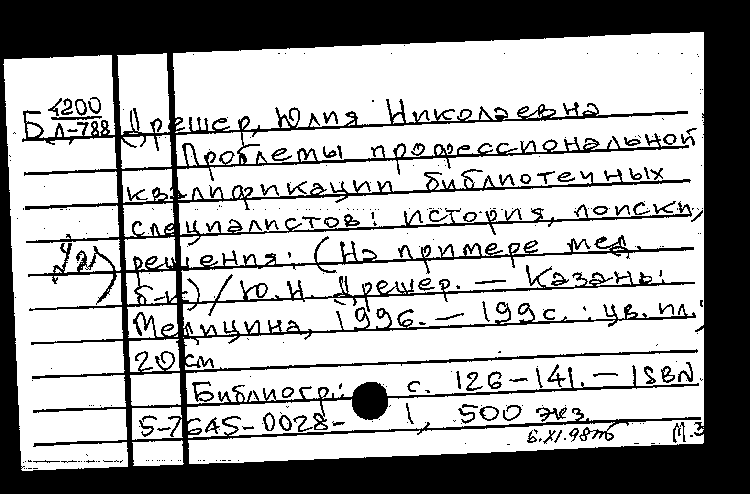 Б 4200
Л-788
Дрешер, Юлия Николаевна
Проблемы профессиональной
квалификации библиотечных
специалистов: история, поиски,
решения: (На примере мед.
б-к) / Ю.Н. Дрешер. — Казань:
Медицина, 1996. — 199 с. : цв. ил.;
20 см
Библиогр.: с. 126-141. — ISBN
5-7645-0028-1, 500 экз.
6.XI.98
М.З